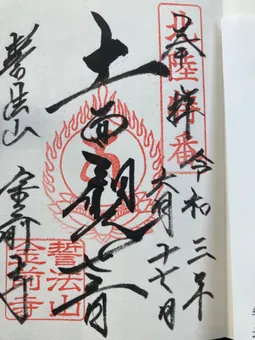 北陸特番
奉拝 令和三年
六月十七日
十一面観世音
誓法山
金前寺
誓法山
金前寺